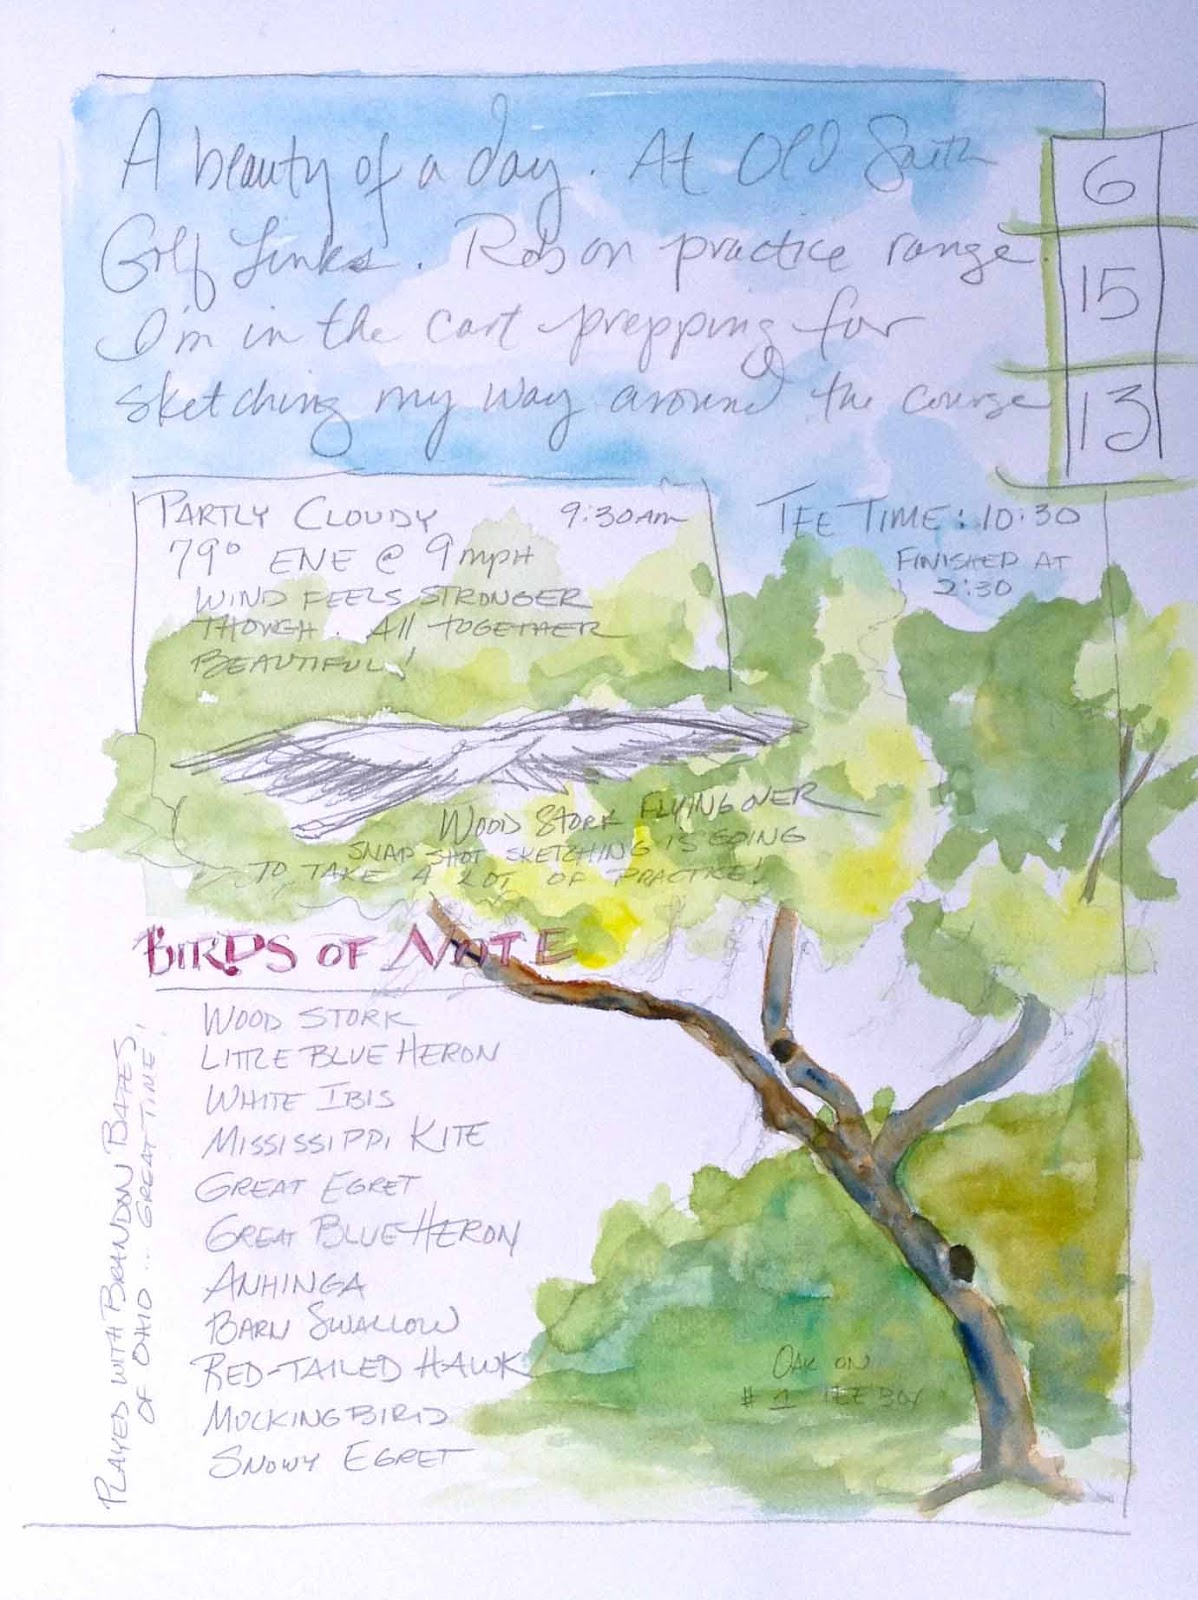 A beauty of a day. At Old South
Golf Links. Rob on practice range.
I'm in the cart prepping for
sketching my way around the course
6
15
13
PARTLY CLOUDY 9:30am
79° ENE @ 9 mph
WIND FEELS STRONGER
THOUGH. All TOGETHER
BEAUTIFUL!
TEE TIME: 10:30
FINISHED AT
2:30
WOOD STORK FLYING OVER
SNAP SHOT SKETCHING IS GOING
TO TAKE A LOT OF PRACTICE!
BIRDS OF NOTE
WOOD STORK
LITTLE BLUE HERON
WHITE IBIS
MISSISSIPPI KITE
GREAT EGRET
GREAT BLUE HERON
ANHINGA
BARN SWALLOW
RED-TAILED HAWK
MOCKINGBIRD
SNOWY EGRET
PLAYED WITH BRANDON BATES,
OF OHIO... GREAT TIME!
OAK ON
# 1 TEE BOX